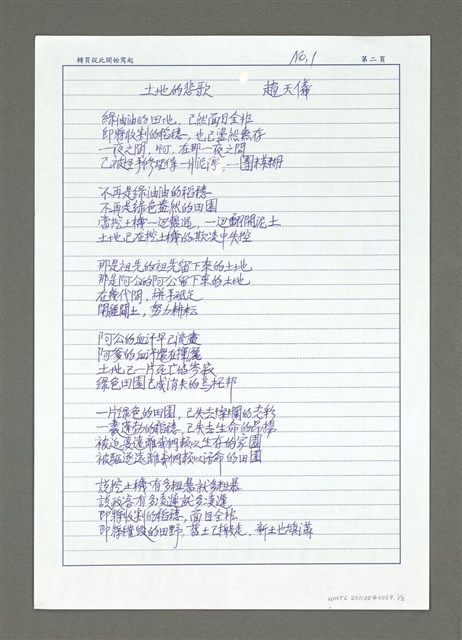 轉頁從此開始寫起
No.1
第二頁
土地的悲歌 趙天儀
綠油油的田地,已然面目全非
即將收割的稻穗,也已盪然無存
一夜之間,啊,在那一夜之間
已被怪手修理像一川泥濘,一團模糊
不再是綠油油的稻穗
不再是綠色盎然的田園
當挖土機一邊輾過,一邊翻開泥土
土地已在挖土機的欺凌中失控
那是祖先的祖先留下來的土地
那是阿公的阿公留下來的土地
在幾代間,拼手胝足
開疆闢土,努力耕耘
阿公的血汗早已流盡
阿爹的血汗還在揮灑
土地已一片死亡的岑寂
綠色田園已成消失的烏托邦
一片綠色的田園,已失去燦爛的光彩
一囊蓬勃的稻穗,已失去生命的
被迫要遠離我們賴以生存的家園
被驅逐遠離我們賴以活命的田園
說挖土機有多粗暴就多粗暴
說政客有多凌遲就多凌遲
即將收割的稻穗,面目全非
即將摧毀的田野,舊土已搬走,新土也填滿
NMTL 20120040069, 1/2